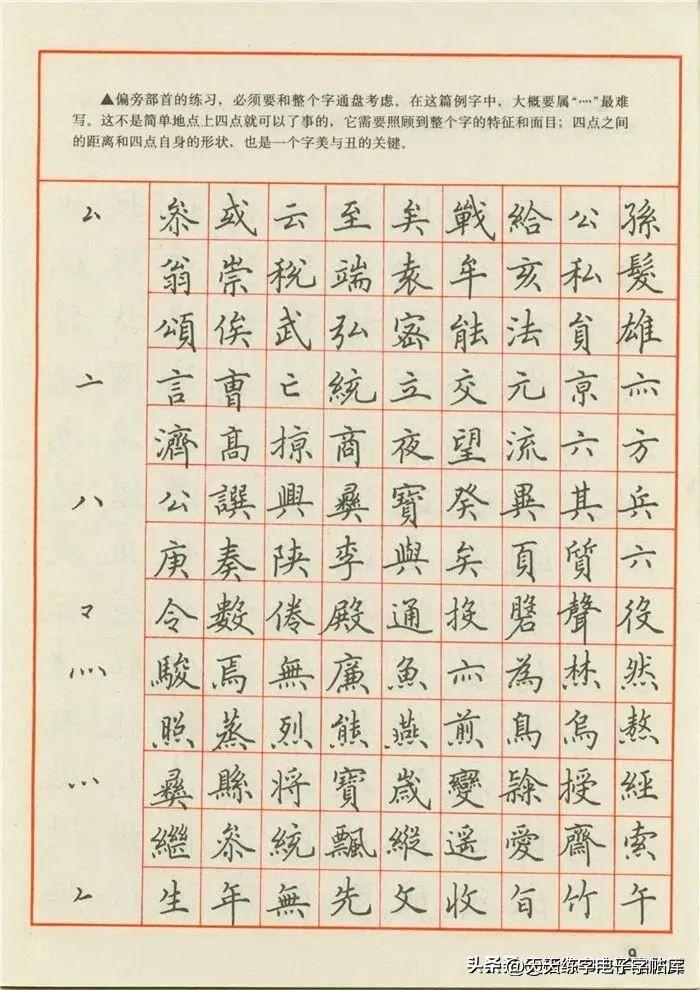 ▲偏旁部首的练习，必须要和整个字通盘考虑。在这篇例字中，大概要属“灬”最难
写。这不是简单地点上四点就可以了事的，它需要照顾到整个字的特征和面目；四点之间
的距离和四点自身的形状，也是一个字美与丑的关键。
厶 叅 或 云 至 矣 戰 給 公 孫
翁 崇 税 端 袁 牟 亥 私 髮
頌 俟 武 弘 密 能 法 貟 雄
亠 言 曹 亡 統 立 交 元 京 亦
濟 高 掠 商 夜 望 流 六 方
八 公 譔 興 彝 寶 癸 異 其 兵
庚 奏 陕 李 與 矣 頁 質 六
令 數 倦 殿 通 投 聲 役
灬 駿 焉 無 廉 魚 亦 為 然
照 蒸 烈 熊 燕 煎 鳥 烏 熬
彝 縣 将 寶 歲 變 授 經
繼 叅 統 飄 縱 遥 愛 齋 索
𠂉 生 年 無 先 文 收 旨 竹 午
9
头条@天天练字电子字帖库